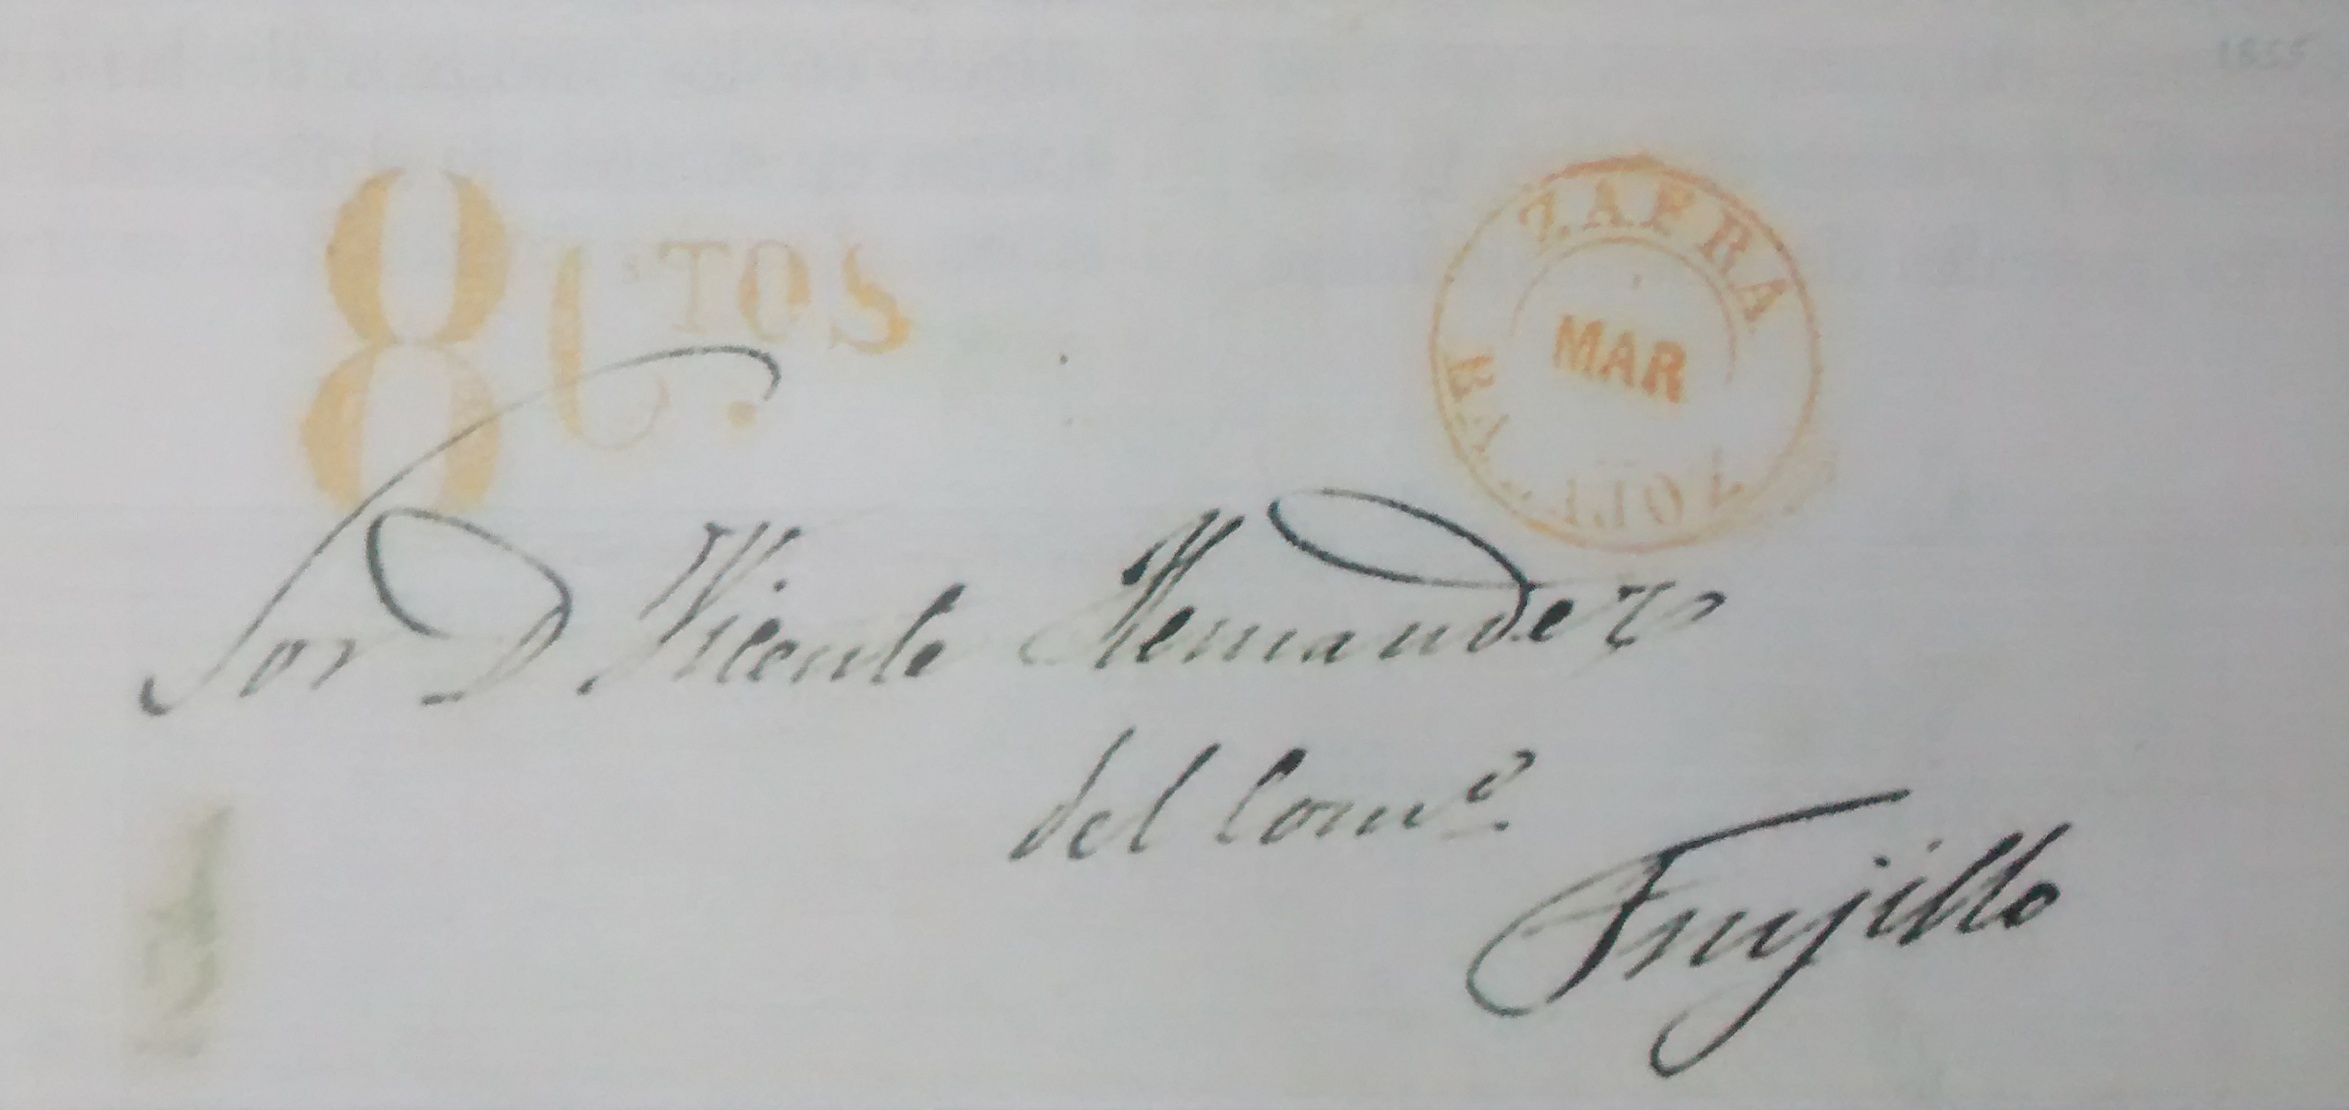 1855
8 CTOS.
ZAFRA
MAR
BADAJOZ
Sor D Vicente Hernandez
del Comº
Trujillo